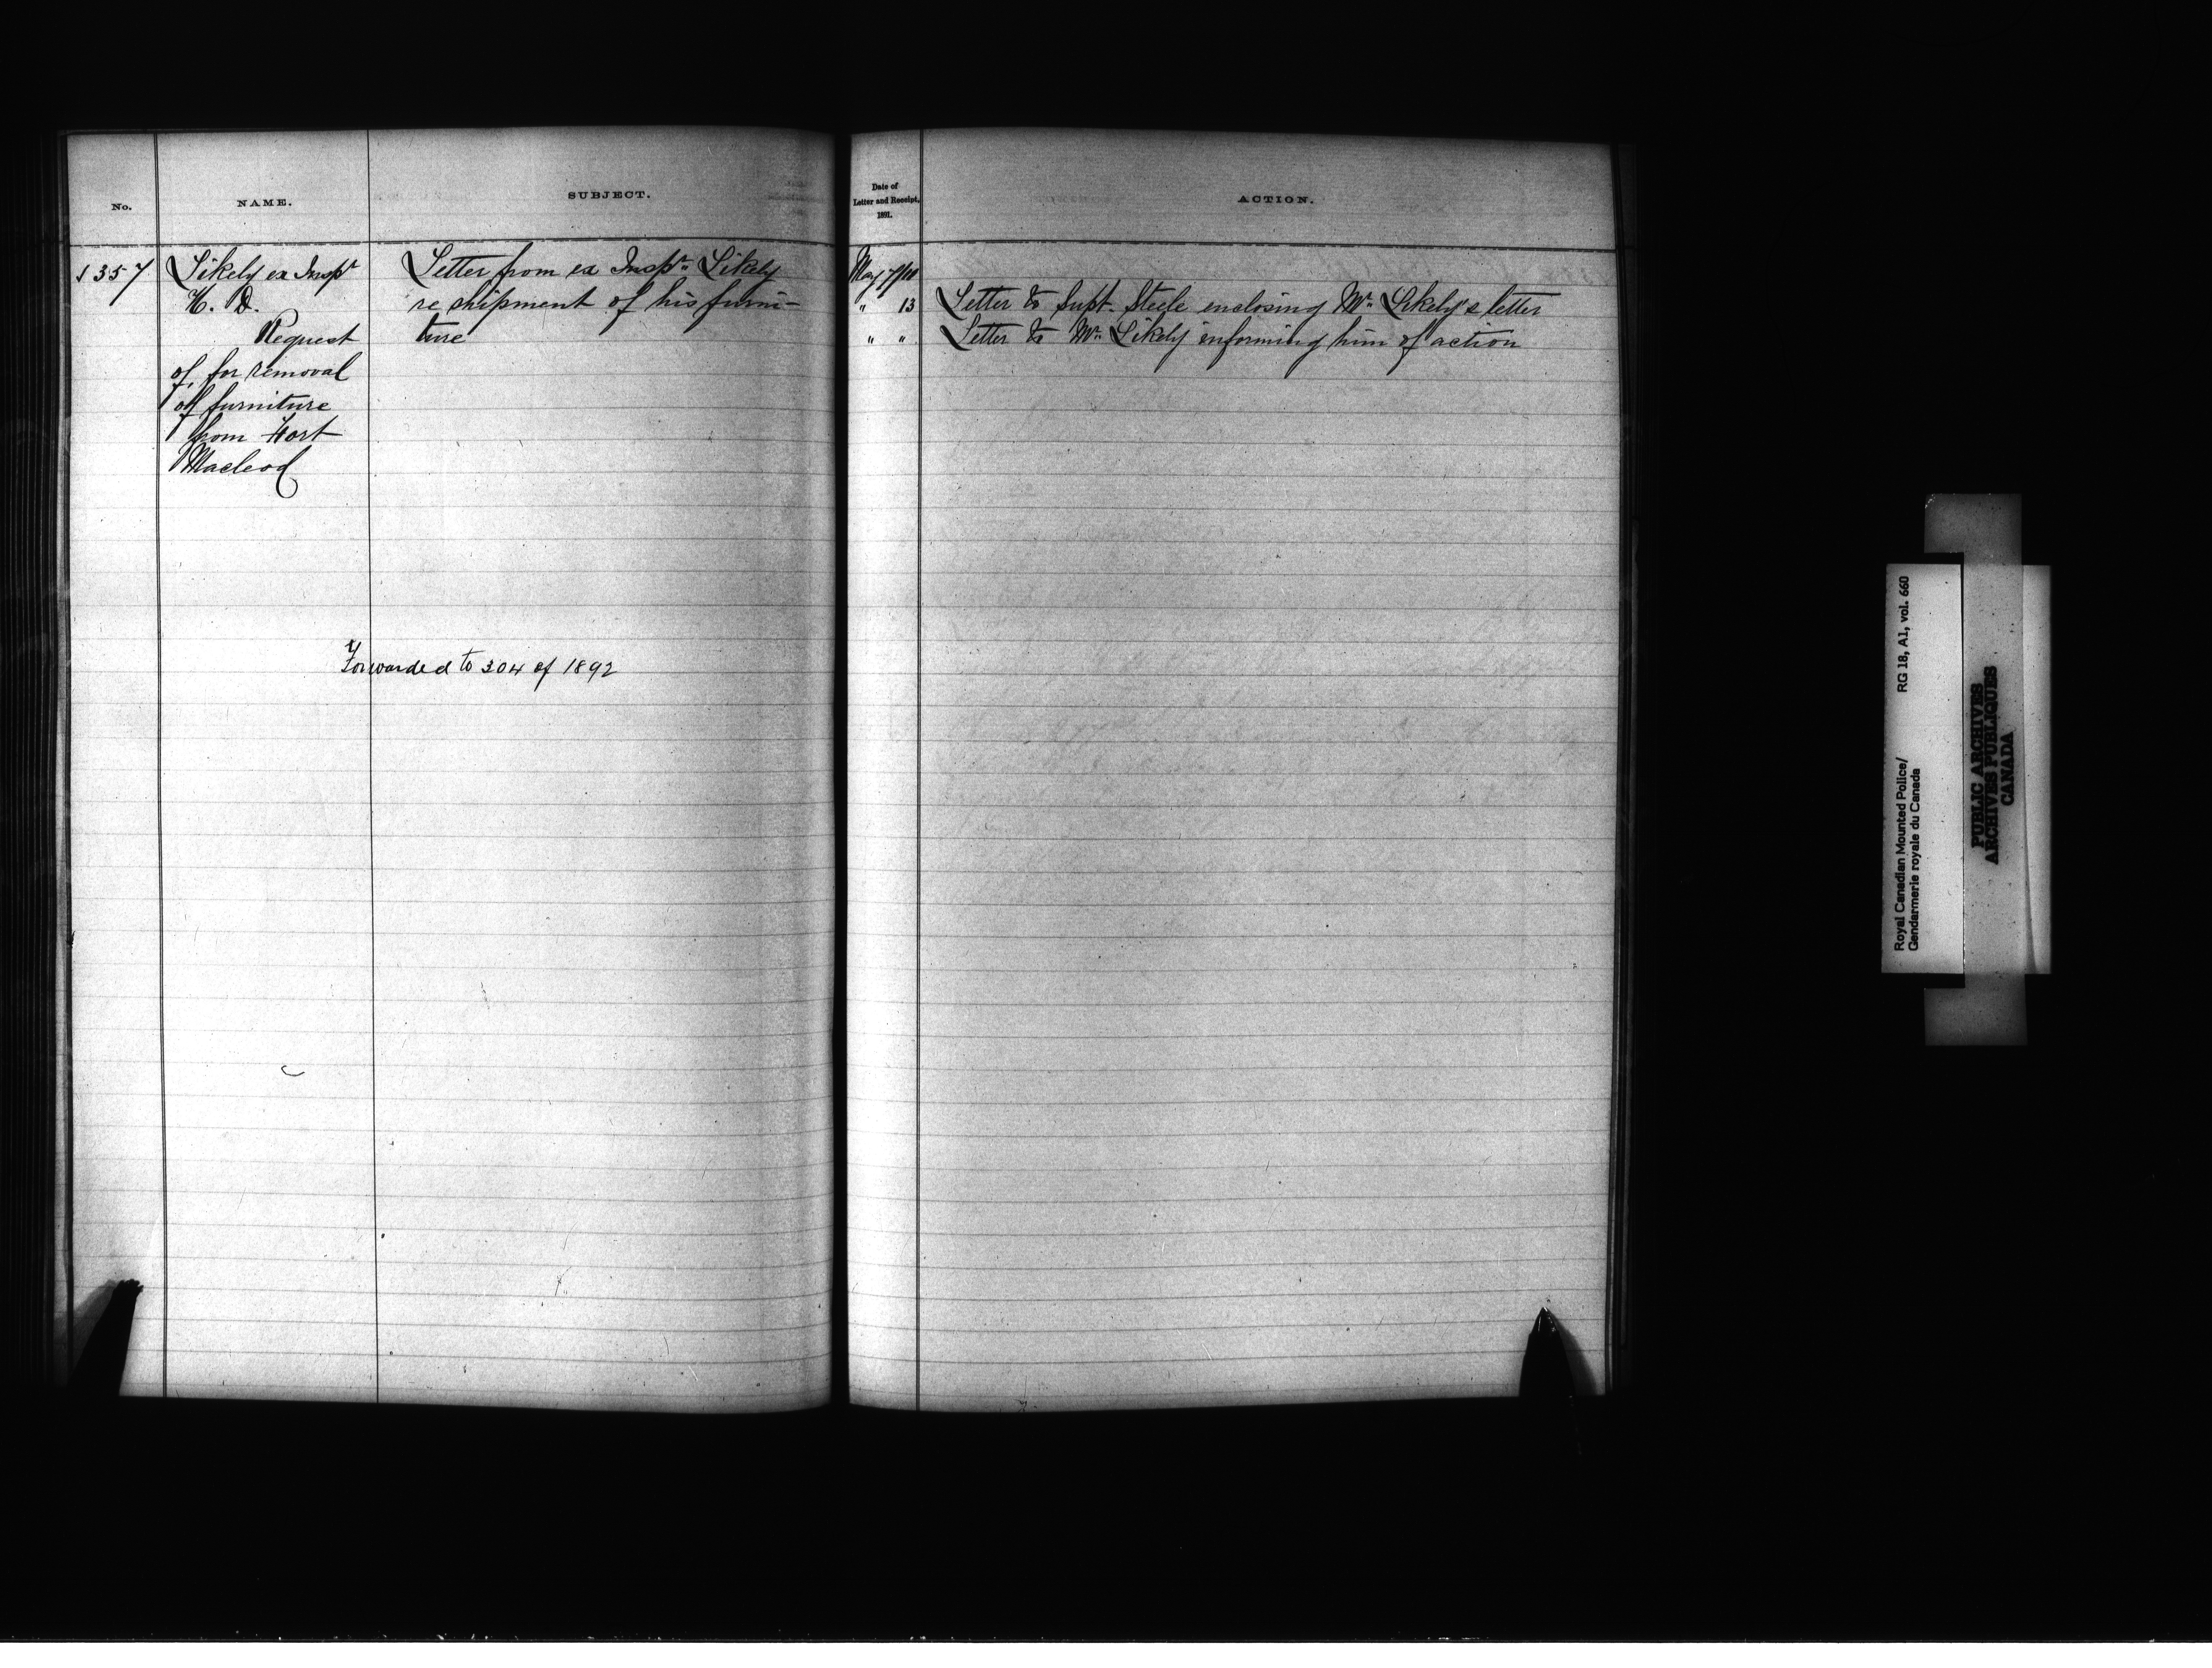 No.
NAME.
SUBJECT.
Date of
Letter and Receipt,
1891.
ACTION.
1357
Likely ex Inspr
H. D.
Request
of, for removal
of furniture
from Fort
Macleod
Letter from ex Inspr. Likely
re shipment of his furni-
ture
May 7/11
" 13 Letter to Supt. Steele enclosing Mr. Likely's letter
" " Letter to Mr. Likely informing him of action
Forwarded to 304 of 1892
Royal Canadian Mounted Police/ RG 18, A1, vol. 660
Gendarmerie royale du Canada
PUBLIC ARCHIVES
ARCHIVES PUBLIQUES
CANADA